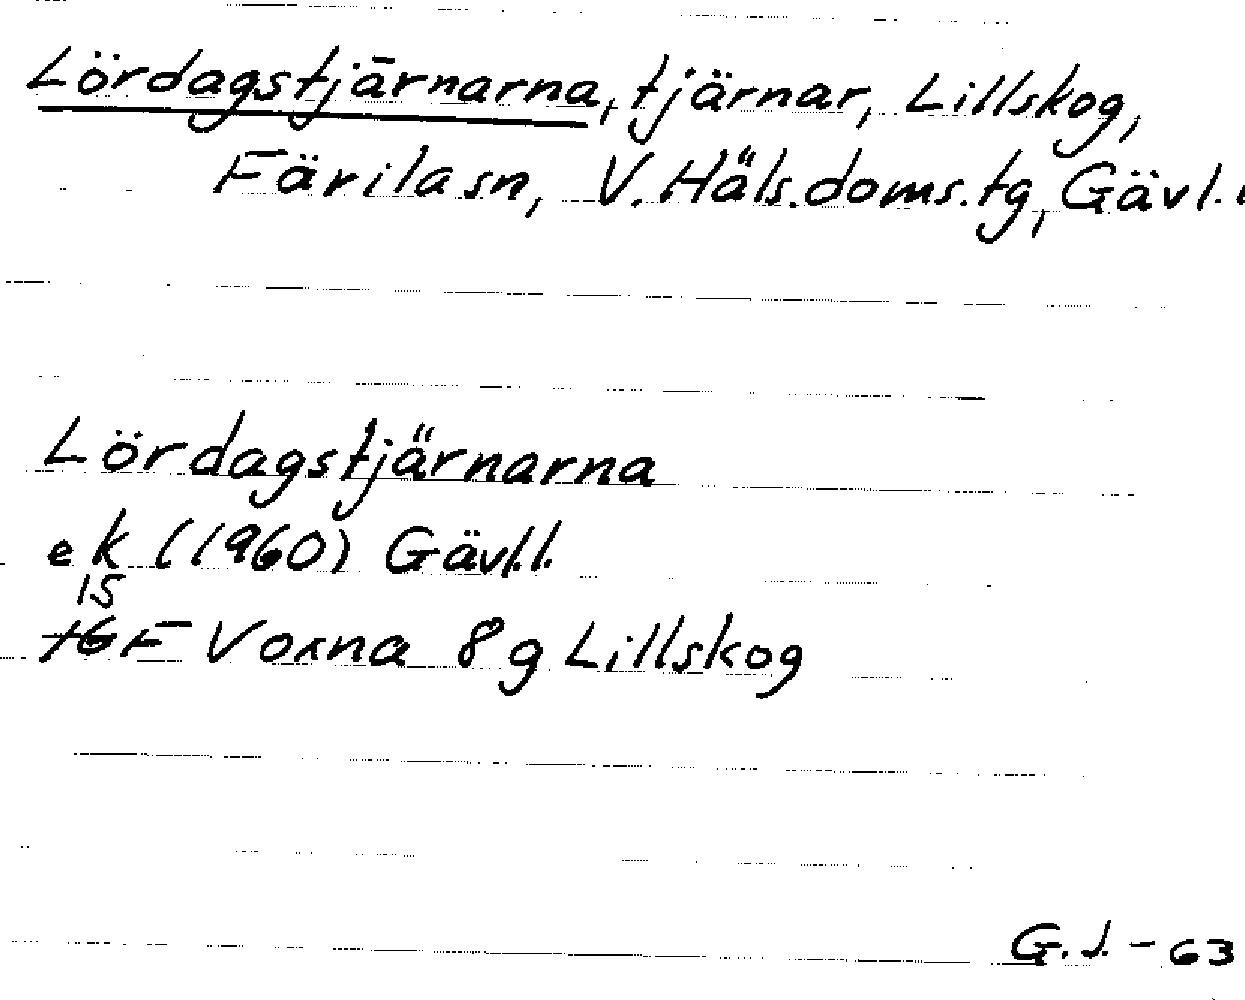 Lördagstjärnarna, tjärnar, Lillskog,
Färila sn, V. Häls. doms. tg, Gävl. l
Lördagstjärnarna
ek (1960) Gävl.l.
15
16 F Voxna 8 g Lillskog
G. J. - 63